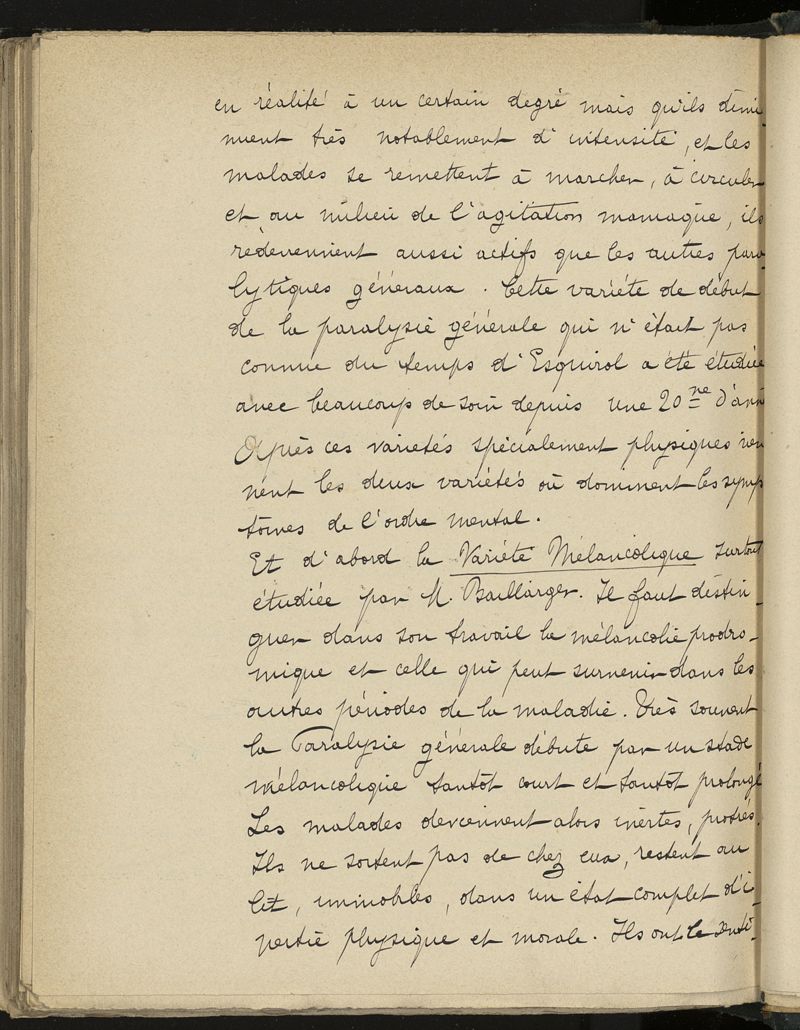 en réalité à un certain degré mais qu'ils dimi-
nuent très notablement d'intensité, et les
malades se remettent à marcher, à circuler
et au milieu de l'agitation maniaque, ils
redeviennent aussi actifs que les autres para-
lytiques généraux. Cette variété de début
de la paralysie générale qui n'était pas
connue du temps d'Esquirol a été étudiée
avec beaucoup de soin depuis une 20ne d'ann
Après ces variétés spécialement physiques vien
nent les deux variétés où dominent les symp
tômes de l'ordre mental.
Et d'abord la Variété Mélancolique surtout
étudiée par M. Baillarger. Il faut distin-
guer dans son travail la mélancolie prodro-
mique et celle qui peut survenir dans les
autres périodes de la maladie. Très souvent
la Paralysie générale débute par un stade
mélancolique tantôt court et tantôt prolongé
Les malades deviennent alors inertes, prostrés.
Ils ne sortent pas de chez eux, restent au
lit, immobiles, dans un état complet d'i-
nertie physique et morale. Ils ont le senti-